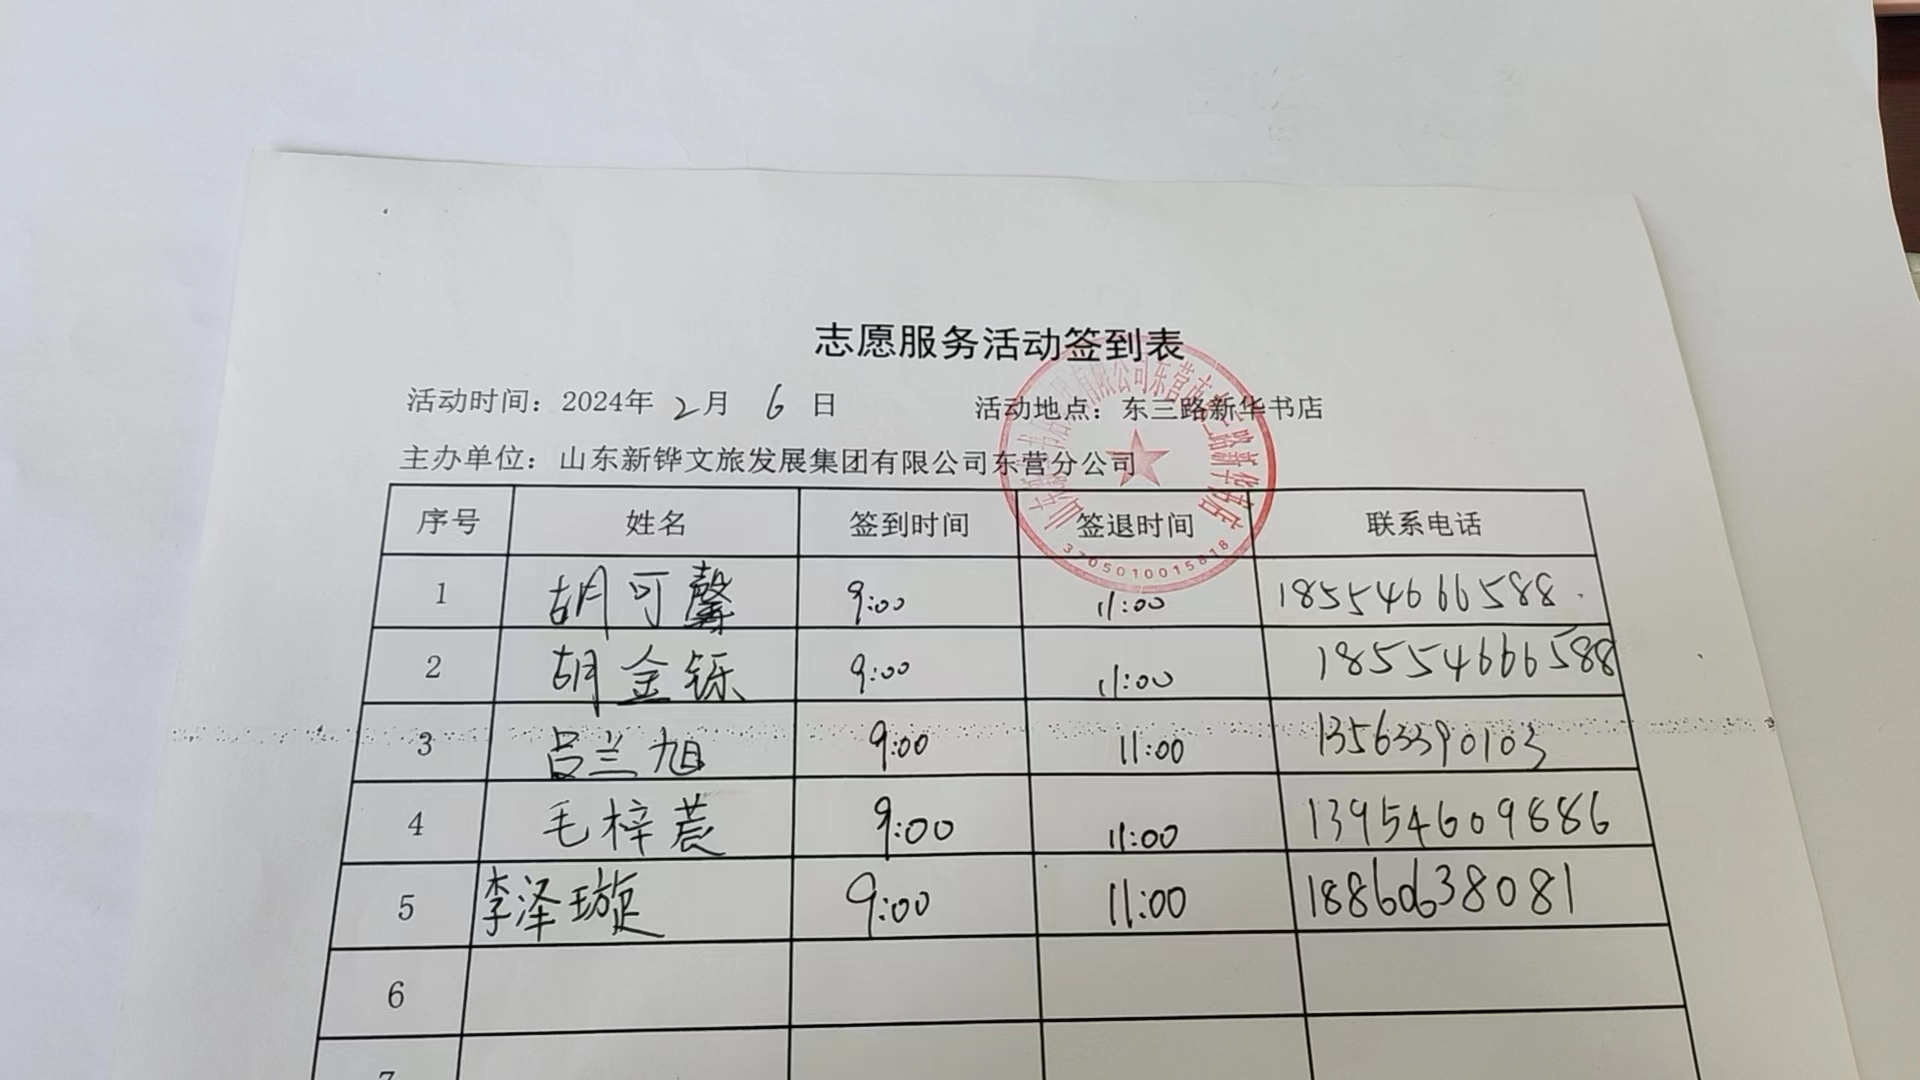 志愿服务活动签到表
活动时间：2024年 2月 6 日 活动地点：东三路新华书店
主办单位：山东新铧文旅发展集团有限公司东营分公司
序号 姓名 签到时间 签退时间 联系电话
1 胡可馨 9:00 11:00 18554666588
2 胡金铄 9:00 11:00 18554666588
3 吕兰旭 9:00 11:00 13563390103
4 毛梓萇 9:00 11:00 13954609886
5 李泽璇 9:00 11:00 18860638081
6
7
有限公司东营市东三路新华书店
3705010015818